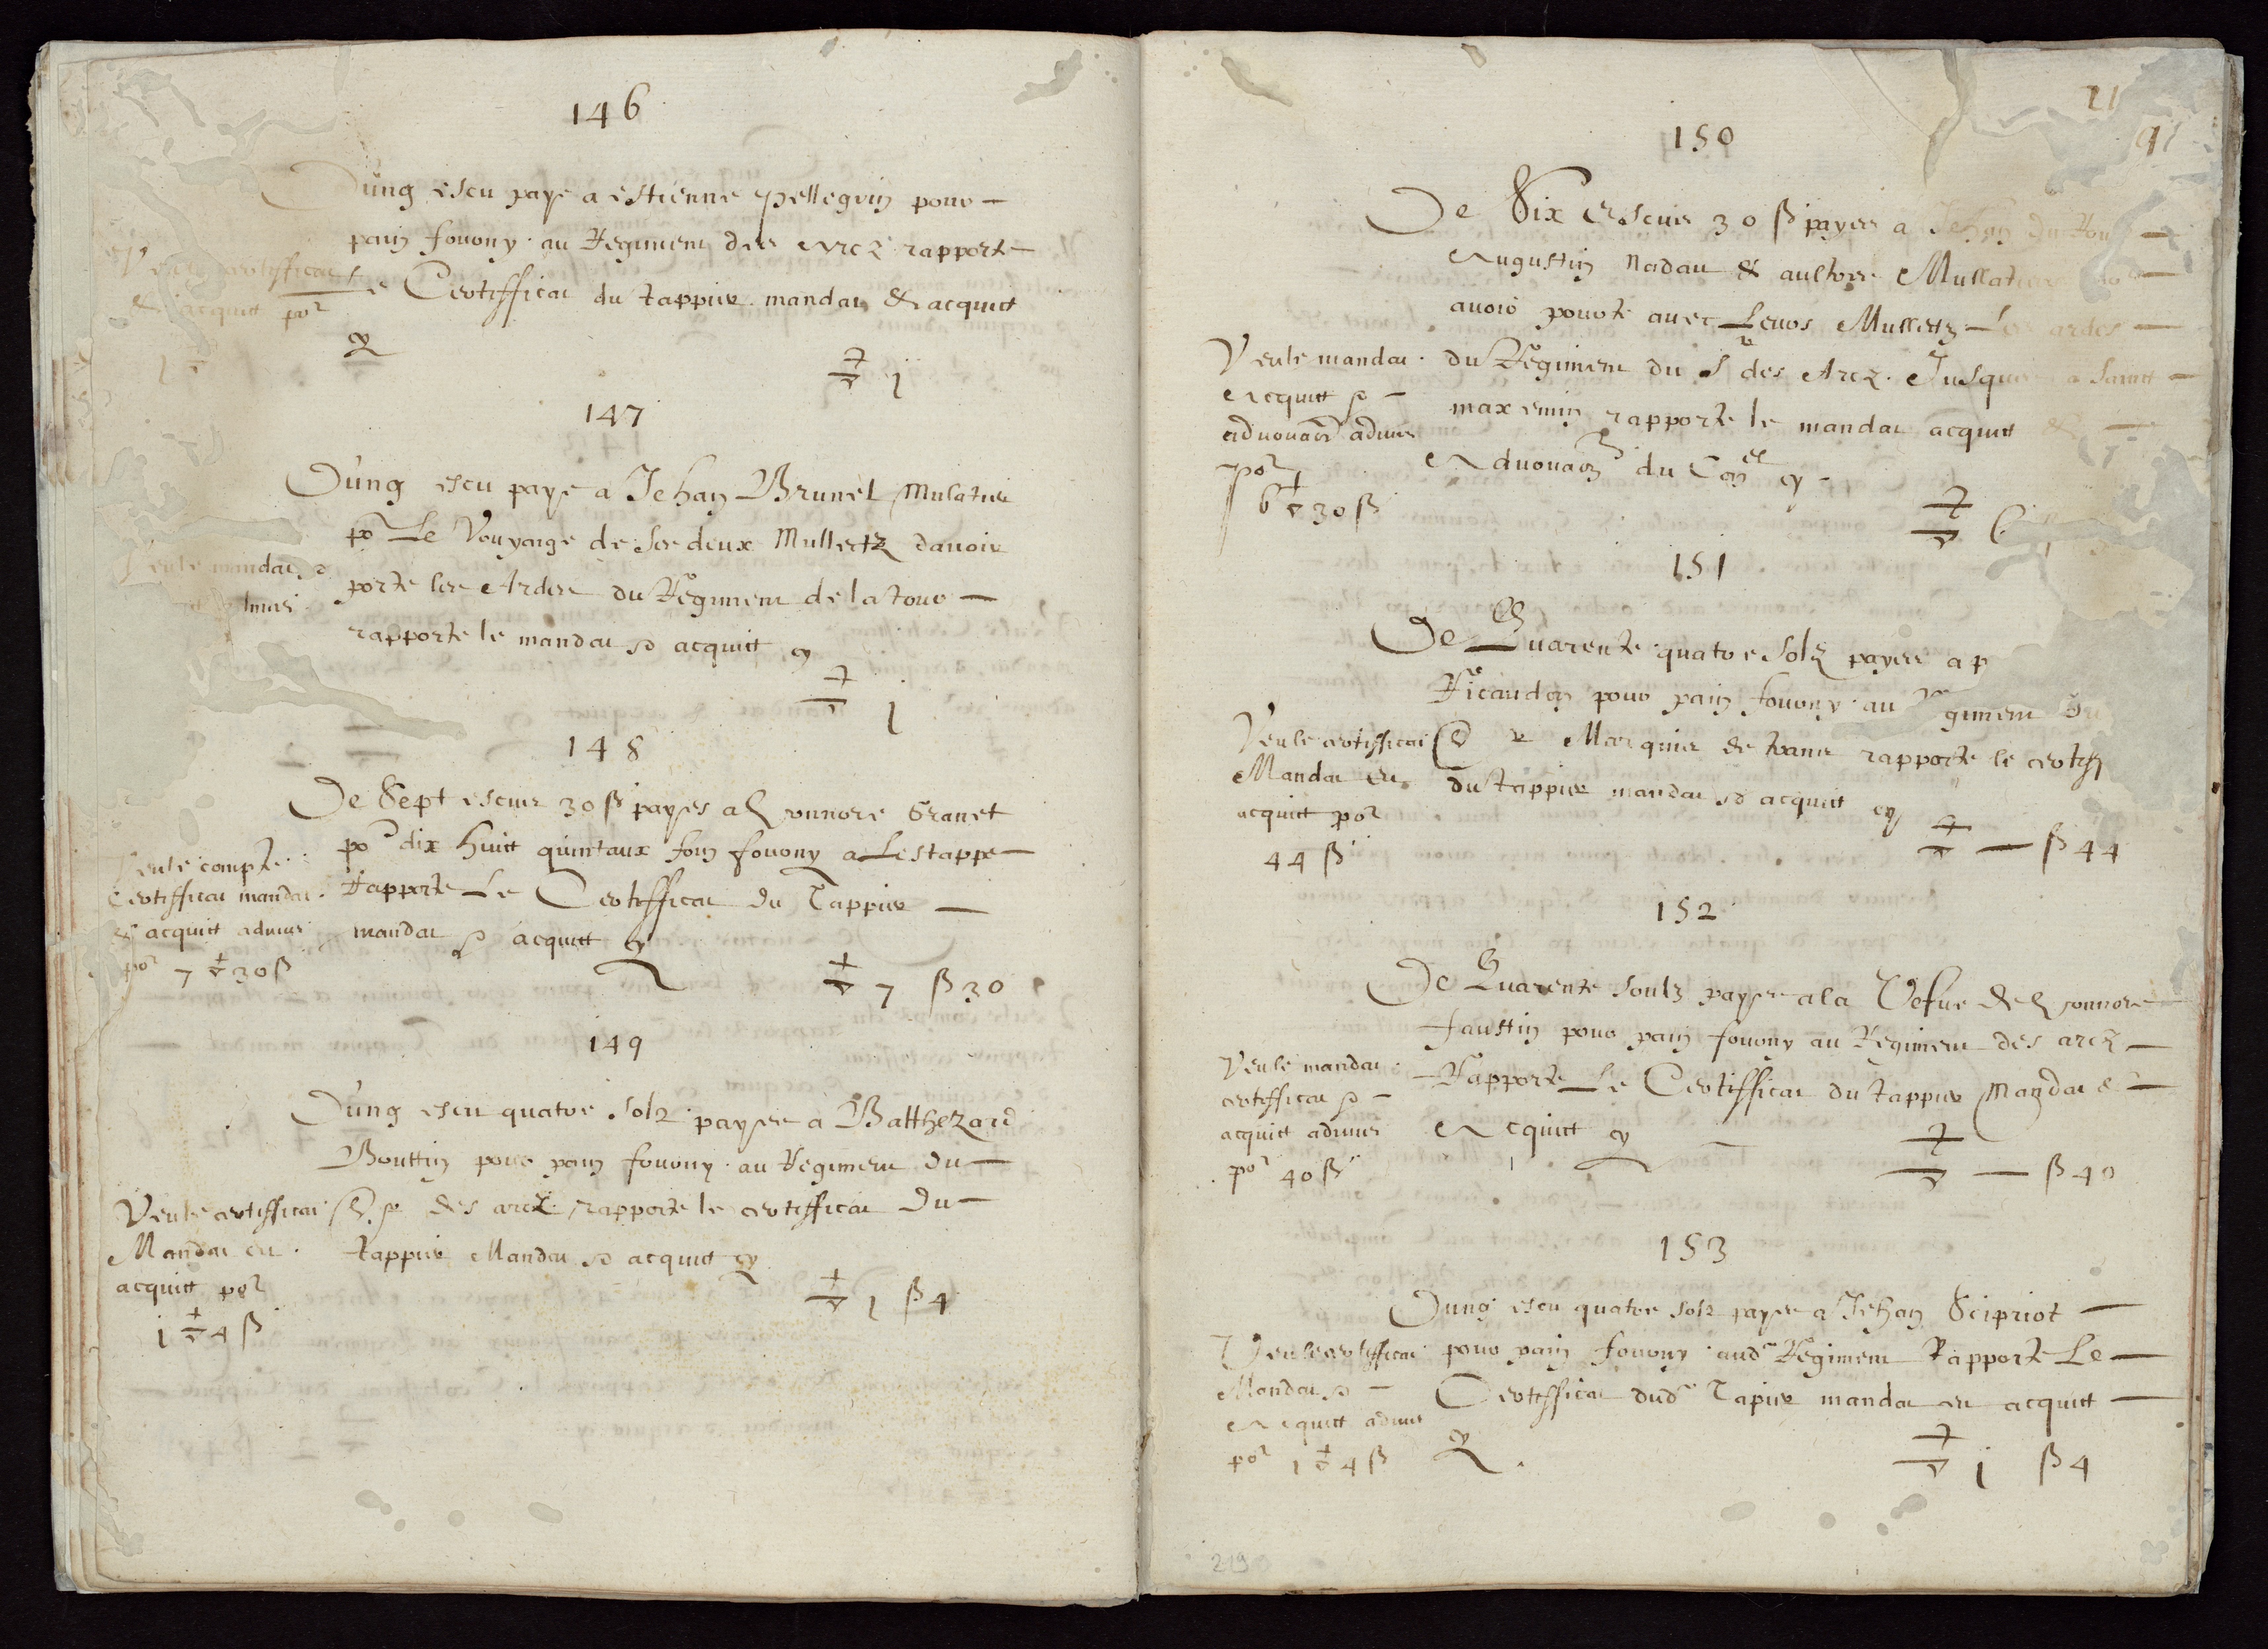 146
Dung escu paye a estienne pellegrin pour
pain fourny au Regiment des Arcz rapporte
Veu le certifficat
le Certifficat du tappier mandat & acquit
& acquit por
cy
1
147
Dung escu paye a Jehan Brunel Mulatier
por Le Vouyaige de ses deux Mulletz davoir
Veu le mandat &
porte les Ardes du Regiment de la tour
rapporte le mandat & acquit cy
1
148
De Sept escus 30 ß payes a honnore Granet
por dix huict quintaux foin fourny a Lestappe
Veu le compte
Certifficat mandat
Rapporte Le Certifficat du Tappier
& acquit admis
mandat & acquit cy
por 7 30 ß
7 ß 30
149
Dung escu quatre solz payes a Balthezard
Bouttin pour pain fourny au Regiment du
Veu le certifficat
Sr des arcz rapporte le certifficat du
Mandat et
tappier Mandat & acquit cy
acquit por
1 ß 4
1 4 ß
21
91
150
De Six Escus 30 ß payes a Jehan du
Augustin Nadau & aultres Mullatiers
avoir pourte avec Leurs Mulletz Les ardes
Veu le mandat
du Regiment du Sr des Arcz Jusques a Sainct
Acquit &
maxemin rapporte le mandat acquit &
advouaon admis
Advouaon du Conel cy
por
6 30 ß
6
151
De Quarente quatre solz payes a p
Ricaudon pour pain fourny au Regiment du
Veu le certifficat
Sr Marquis de trans rapporte le certiff
Mandat et
du tappier mandat & acquit cy
acquit por
44 ß
ß 44
152
De Quarente soulz payes a la Vefue de honnore
faustin pour pain fourny au Regiment des arcz
Veu le mandat
certifficat &
Rapporte Le Certifficat du tappier Mandat &
acquit admis
Acquit cy
por 40 ß
ß 40
153
Dung escu quatre solz payes a Jehan Scipriot
Veu le certifficat
pour pain fourny aud Regiment Rapporte Le
Mandat &
Certifficat dud Tapier mandat et acquit
Acquit admis
cy
por 1 4 ß
1 ß 4
219